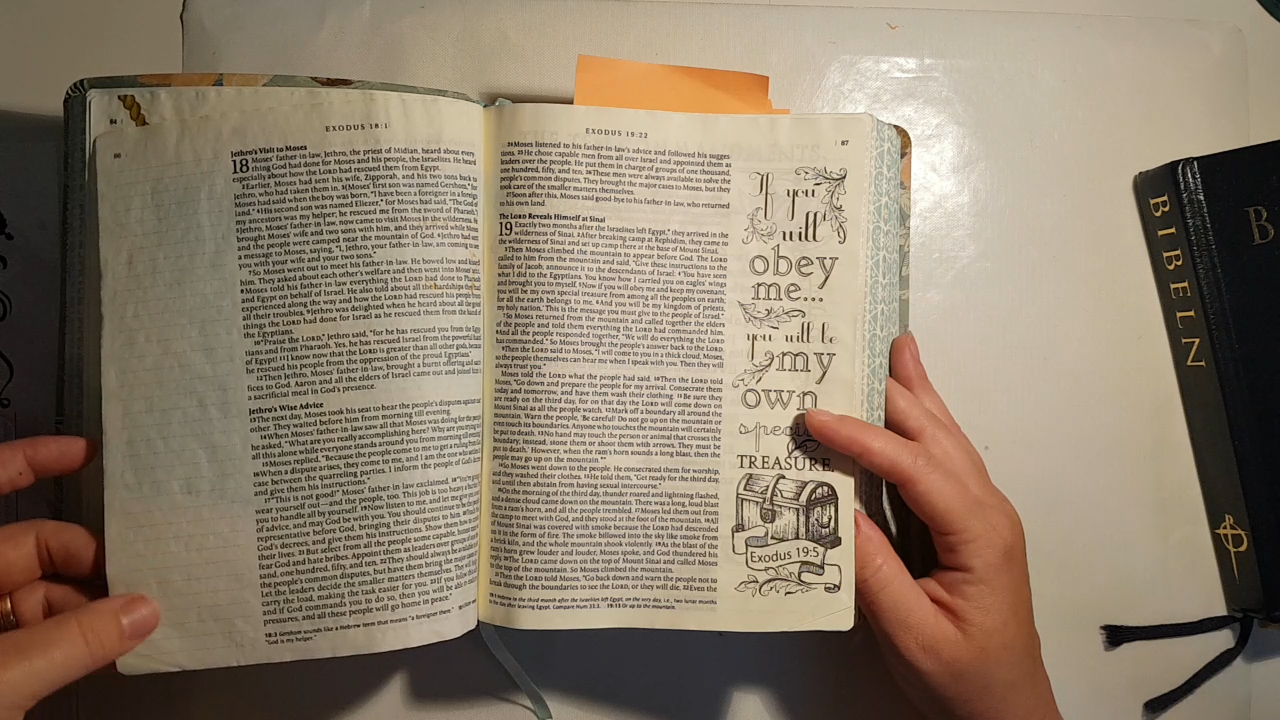 84
86
EXODUS 18:1
Jethro's Visit to Moses
18 Moses' father-in-law, Jethro, the priest of Midian, heard about every
thing God had done for Moses and his people, the Israelites. He heard
especially about how the LORD had rescued them from Egypt.
2Earlier, Moses had sent his wife, Zipporah, and his two sons back to
Jethro, who had taken them in. 3(Moses' first son was named Gershom,* for
Moses had said when the boy was born, "I have been a foreigner in a foreign
land." 4His second son was named Eliezer,* for Moses had said, "The God of
my ancestors was my helper; he rescued me from the sword of Pharaoh.")
5Jethro, Moses' father-in-law, now came to visit Moses in the wilderness. He
brought Moses' wife and two sons with him, and they arrived while Moses
and the people were camped near the mountain of God. 6Jethro had sent
a message to Moses, saying, "I, Jethro, your father-in-law, am coming to see
you with your wife and your two sons."
7So Moses went out to meet his father-in-law. He bowed low and kissed
him. They asked about each other's welfare and then went into Moses' tent.
8Moses told his father-in-law everything the LORD had done to Pharaoh
and Egypt on behalf of Israel. He also told about all the hardships they had
experienced along the way and how the LORD had rescued his people from
all their troubles. 9Jethro was delighted when he heard about all the good
things the LORD had done for Israel as he rescued them from the hand of
the Egyptians.
10"Praise the LORD," Jethro said, "for he has rescued you from the Egyp
tians and from Pharaoh. Yes, he has rescued Israel from the powerful hand
of Egypt! 11I know now that the LORD is greater than all other gods, because
he rescued his people from the oppression of the proud Egyptians."
12Then Jethro, Moses' father-in-law, brought a burnt offering and sacri
fices to God. Aaron and all the elders of Israel came out and joined him in
a sacrificial meal in God's presence.
Jethro's Wise Advice
13The next day, Moses took his seat to hear the people's disputes against each
other. They waited before him from morning till evening.
14When Moses' father-in-law saw all that Moses was doing for the people,
he asked, "What are you really accomplishing here? Why are you trying to do
all this alone while everyone stands around you from morning till evening?"
15Moses replied, "Because the people come to me to get a ruling from God.
16When a dispute arises, they come to me, and I am the one who settles the
case between the quarreling parties. I inform the people of God's decrees
and give them his instructions."
17"This is not good!" Moses' father-in-law exclaimed. 18"You're going to
wear yourself out—and the people, too. This job is too heavy a burden for
you to handle all by yourself. 19Now listen to me, and let me give you a word
of advice, and may God be with you. You should continue to be the people's
representative before God, bringing their disputes to him. 20Teach them
God's decrees, and give them his instructions. Show them how to conduct
their lives. 21But select from all the people some capable, honest men who
fear God and hate bribes. Appoint them as leaders over groups of one thou
sand, one hundred, fifty, and ten. 22They should always be available to solve
the people's common disputes, but have them bring the major cases to you.
Let the leaders decide the smaller matters themselves. They will help you
carry the load, making the task easier for you. 23If you follow this advice,
and if God commands you to do so, then you will be able to endure the
pressures, and all these people will go home in peace."
18:3 Gershom sounds like a Hebrew term that means "a foreigner there."
"God is my helper."
EXODUS 19:22
87
24Moses listened to his father-in-law's advice and followed his sugges
tions. 25He chose capable men from all over Israel and appointed them as
leaders over the people. He put them in charge of groups of one thousand,
one hundred, fifty, and ten. 26These men were always available to solve the
people's common disputes. They brought the major cases to Moses, but they
took care of the smaller matters themselves.
27Soon after this, Moses said good-bye to his father-in-law, who returned
to his own land.
The LORD Reveals Himself at Sinai
19 Exactly two months after the Israelites left Egypt,* they arrived in the
wilderness of Sinai. 2After breaking camp at Rephidim, they came to
the wilderness of Sinai and set up camp there at the base of Mount Sinai.
3Then Moses climbed the mountain to appear before God. The LORD
called to him from the mountain and said, "Give these instructions to the
family of Jacob; announce it to the descendants of Israel: 4'You have seen
what I did to the Egyptians. You know how I carried you on eagles' wings
and brought you to myself. 5Now if you will obey me and keep my covenant,
you will be my own special treasure from among all the peoples on earth;
for all the earth belongs to me. 6And you will be my kingdom of priests,
my holy nation.' This is the message you must give to the people of Israel."
7So Moses returned from the mountain and called together the elders
of the people and told them everything the LORD had commanded him.
8And all the people responded together, "We will do everything the LORD
has commanded." So Moses brought the people's answer back to the LORD.
9Then the LORD said to Moses, "I will come to you in a thick cloud, Moses,
so the people themselves can hear me when I speak with you. Then they will
always trust you."
Moses told the LORD what the people had said. 10Then the LORD told
Moses, "Go down and prepare the people for my arrival. Consecrate them
today and tomorrow, and have them wash their clothing. 11Be sure they
are ready on the third day, for on that day the LORD will come down on
Mount Sinai as all the people watch. 12Mark off a boundary all around the
mountain. Warn the people, 'Be careful! Do not go up on the mountain or
even touch its boundaries. Anyone who touches the mountain will certainly
be put to death. 13No hand may touch the person or animal that crosses the
boundary; instead, stone them or shoot them with arrows. They must be
put to death.' However, when the ram's horn sounds a long blast, then the
people may go up on the mountain.*"
14So Moses went down to the people. He consecrated them for worship,
and they washed their clothes. 15He told them, "Get ready for the third day,
and until then abstain from having sexual intercourse."
16On the morning of the third day, thunder roared and lightning flashed,
and a dense cloud came down on the mountain. There was a long, loud blast
from a ram's horn, and all the people trembled. 17Moses led them out from
the camp to meet with God, and they stood at the foot of the mountain. 18All
of Mount Sinai was covered with smoke because the LORD had descended
on it in the form of fire. The smoke billowed into the sky like smoke from
a brick kiln, and the whole mountain shook violently. 19As the blast of the
ram's horn grew louder and louder, Moses spoke, and God thundered his
reply. 20The LORD came down on the top of Mount Sinai and called Moses
to the top of the mountain. So Moses climbed the mountain.
21Then the LORD told Moses, "Go back down and warn the people not to
break through the boundaries to see the LORD, or they will die. 22Even the
19:1 Hebrew In the third month after the Israelites left Egypt, on the very day, i.e., two lunar months
to the day after leaving Egypt. Compare Num 33:3. 19:13 Or up to the mountain.
If you
will
obey
me...
you will be
my
own
special
TREASURE.
Exodus 19:5
BIBELN
B